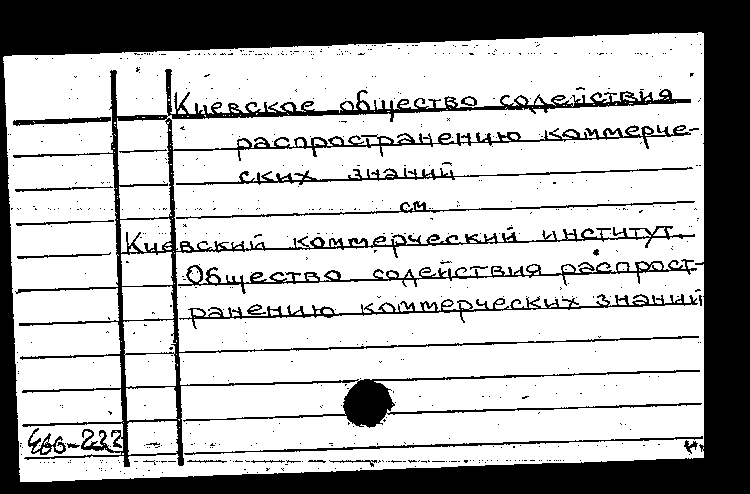 Киевское общество содействия
распространению коммерче-
ских знаний
см.
Киевский коммерческий институт.
Общество содействия распрост-
ранению коммерческих знаний